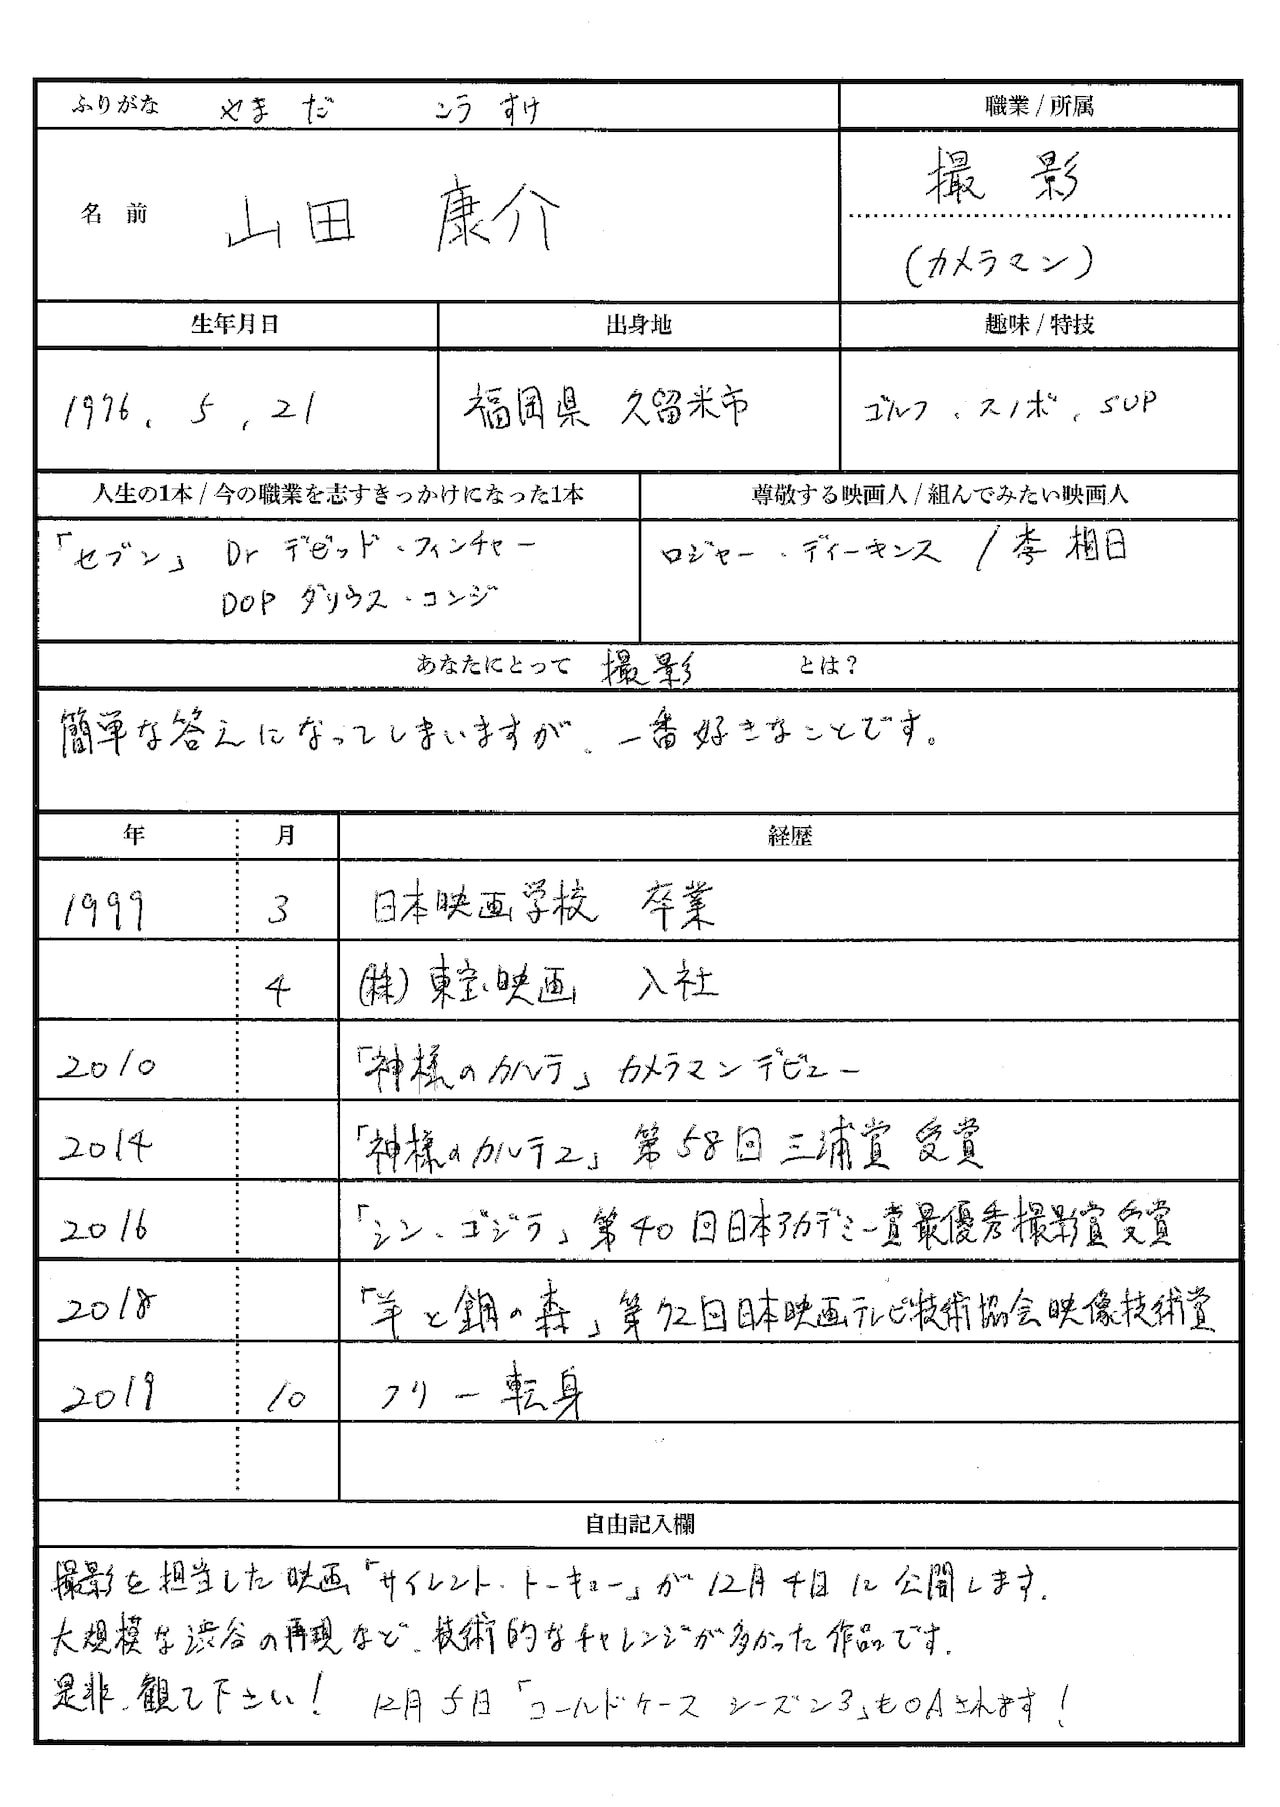 ふりがな やまだ こうすけ
職業/所属
名前 山田 康介
撮影
(カメラマン)
生年月日 出身地 趣味/特技
1976. 5. 21 福岡県 久留米市 ゴルフ、スノボ、SUP
人生の1本/今の職業を志すきっかけになった1本 尊敬する映画人/組んでみたい映画人
「セブン」 Dr デビッド・フィンチャー
DOP ダリウス・コンジ
ロジャー・ディーキンス / 李 相日
あなたにとって 撮影 とは?
簡単な答えになってしまいますが、一番好きなことです。
年 月 経歴
1999 3 日本映画学校 卒業
4 (株)東宝映画 入社
2010 「神様のカルテ」カメラマンデビュー
2014 「神様のカルテ2」第58回 三浦賞 受賞
2016 「シン・ゴジラ」第40回日本アカデミー賞最優秀撮影賞受賞
2018 「羊と鋼の森」第72回日本映画テレビ技術協会映像技術賞
2019 10 フリー転身
自由記入欄
撮影を担当した映画「サイレント・トーキョー」が12月4日に公開します。
大規模な渋谷の再現など、技術的なチャレンジが多かった作品です。
是非、観て下さい! 12月5日「コールドケース シーズン3」もOAされます!